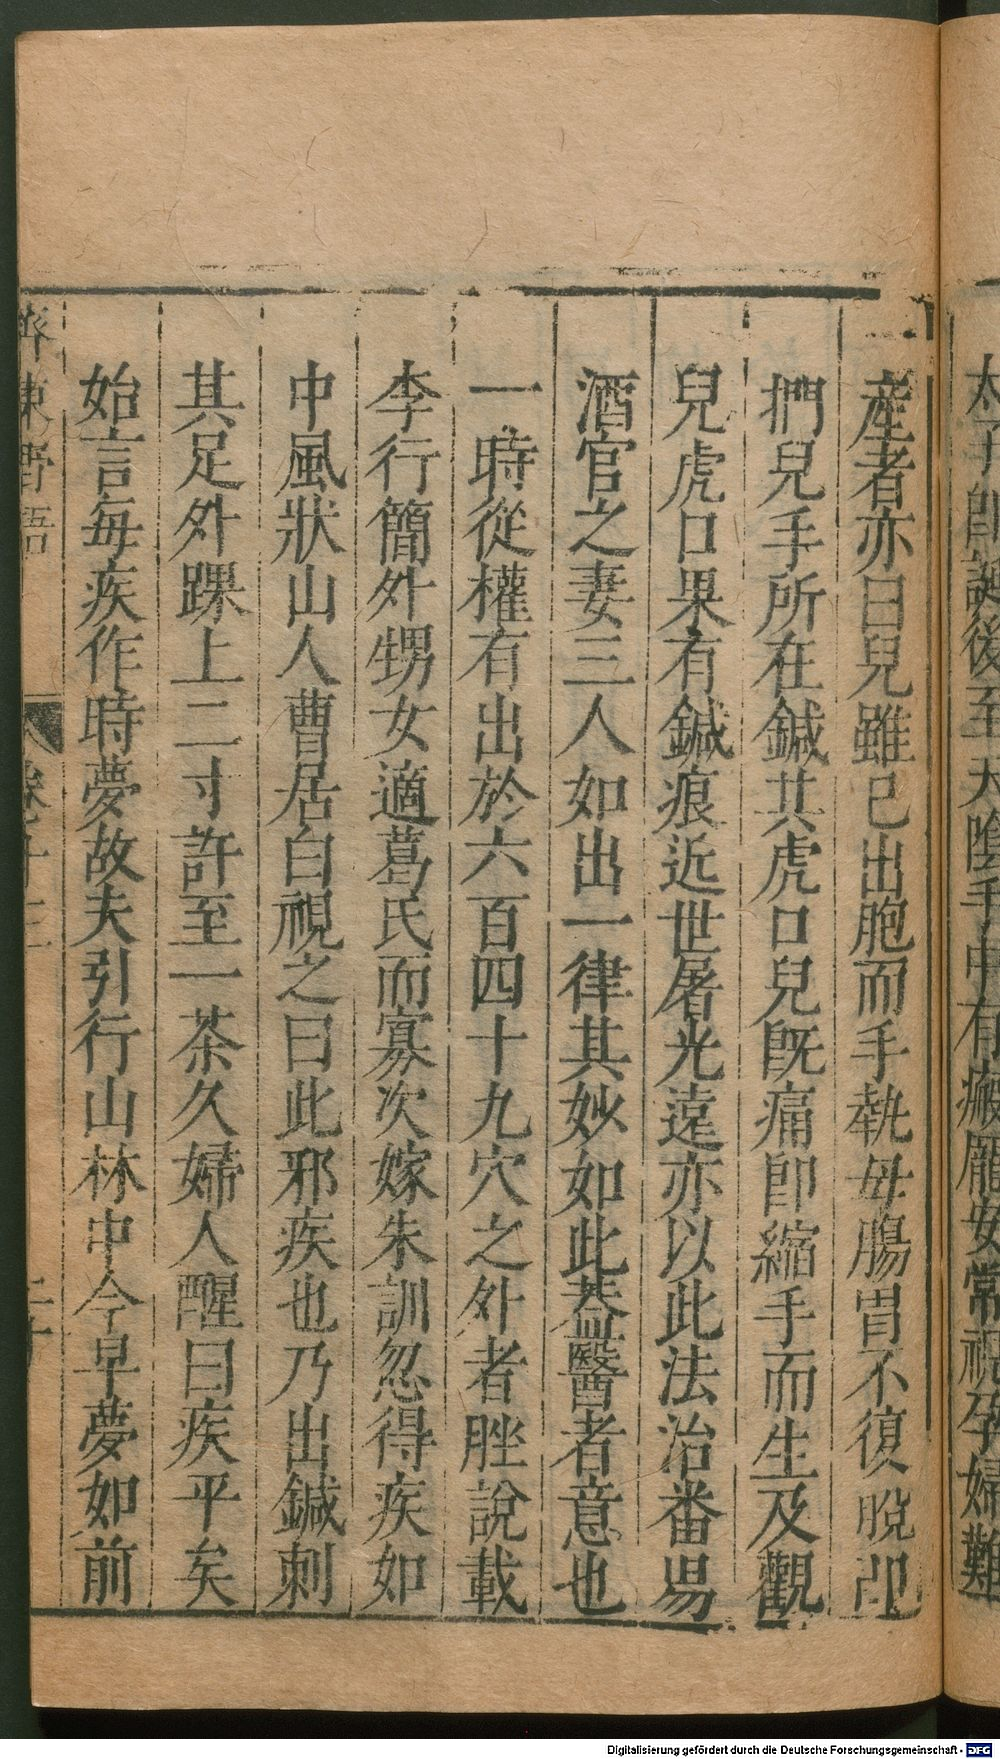 太子即誕後至天陰手中有瘢龐安常視孕婦難
產者亦曰兒雖已出胞而手執母腸胃不復脫卽
捫兒手所在鍼其虎口兒既痛卽縮手而生及觀
兒虎口果有鍼痕近世屠光遠亦以此法治番昜
酒官之妻三人如出一律其妙如此葢醫者意也
一時從權有出於六百四十九穴之外者脞說載
李行簡外甥女適葛氏而寡次嫁朱訓忽得疾如
中風狀山人曹居白視之曰此邪疾也乃出鍼刺
其足外踝上二寸許至一茶久婦人醒曰疾平矣
始言每疾作時夢故夫引行山林中今早夢如前
齊東野語 卷十
Digitalisierung gefördert durch die Deutsche Forschungsgemeinschaft - DFG